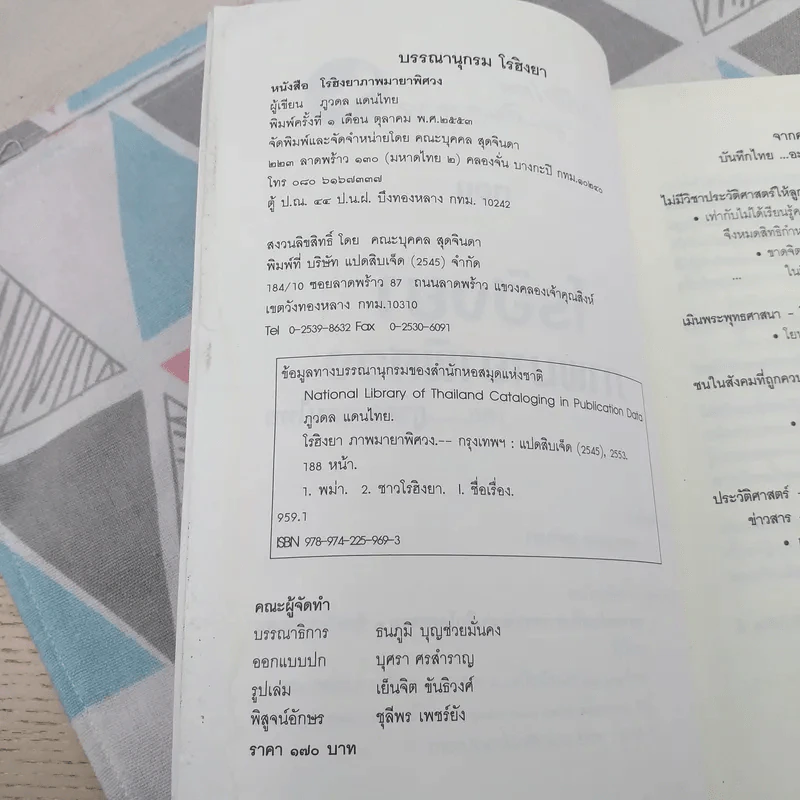 บรรณานุกรม โรฮิงยา
หนังสือ โรฮิงยาภาพมายาพิศวง
ผู้เขียน ภูวดล แดนไทย
พิมพ์ครั้งที่ ๑ เดือน ตุลาคม พ.ศ.๒๕๕๓
จัดพิมพ์และจัดจำหน่ายโดย คณะบุคคล สุดจินดา
๒๒๓ ลาดพร้าว ๑๓๐ (มหาดไทย ๒) คลองจั่น บางกะปิ กทม.๑๐๒๔๐
โทร ๐๘๐ ๖๑๖๗๓๓๗
ตู้ ป.ณ. ๔๔ ป.น.ฝ. บึงทองหลาง กทม. 10242
สงวนลิขสิทธิ์ โดย คณะบุคคล สุดจินดา
พิมพ์ที่ บริษัท แปดสิบเจ็ด (2545) จำกัด
184/10 ซอยลาดพร้าว 87 ถนนลาดพร้าว แขวงคลองเจ้าคุณสิงห์
เขตวังทองหลาง กทม.10310
Tel 0-2539-8632 Fax 0-2530-6091
ข้อมูลทางบรรณานุกรมของสำนักหอสมุดแห่งชาติ
National Library of Thailand Cataloging in Publication Data
ภูวดล แดนไทย.
โรฮิงยา ภาพมายาพิศวง.-- กรุงเทพฯ : แปดสิบเจ็ด (2545), 2553.
188 หน้า.
1. พม่า. 2. ชาวโรฮิงยา. I. ชื่อเรื่อง.
959.1
ISBN 978-974-225-969-3
คณะผู้จัดทำ
บรรณาธิการ ธนภูมิ บุญช่วยมั่นคง
ออกแบบปก บุศรา ศรสำราญ
รูปเล่ม เย็นจิต ขันธิวงศ์
พิสูจน์อักษร ชุลีพร เพชร์ยัง
ราคา ๑๗๐ บาท
บันทึกไทย ...
ไม่มีวิชาประวัติศาสตร์ให้ลูก
• เท่ากับไม่ได้เรียนรู้
จึงหมดสิทธิกำห
• ขาดจิต
... ใน
เมินพระพุทธศาสนา -
• โย
ชนในสังคมที่ถูกควบ
ประวัติศาสตร์ -
ข่าวสาร